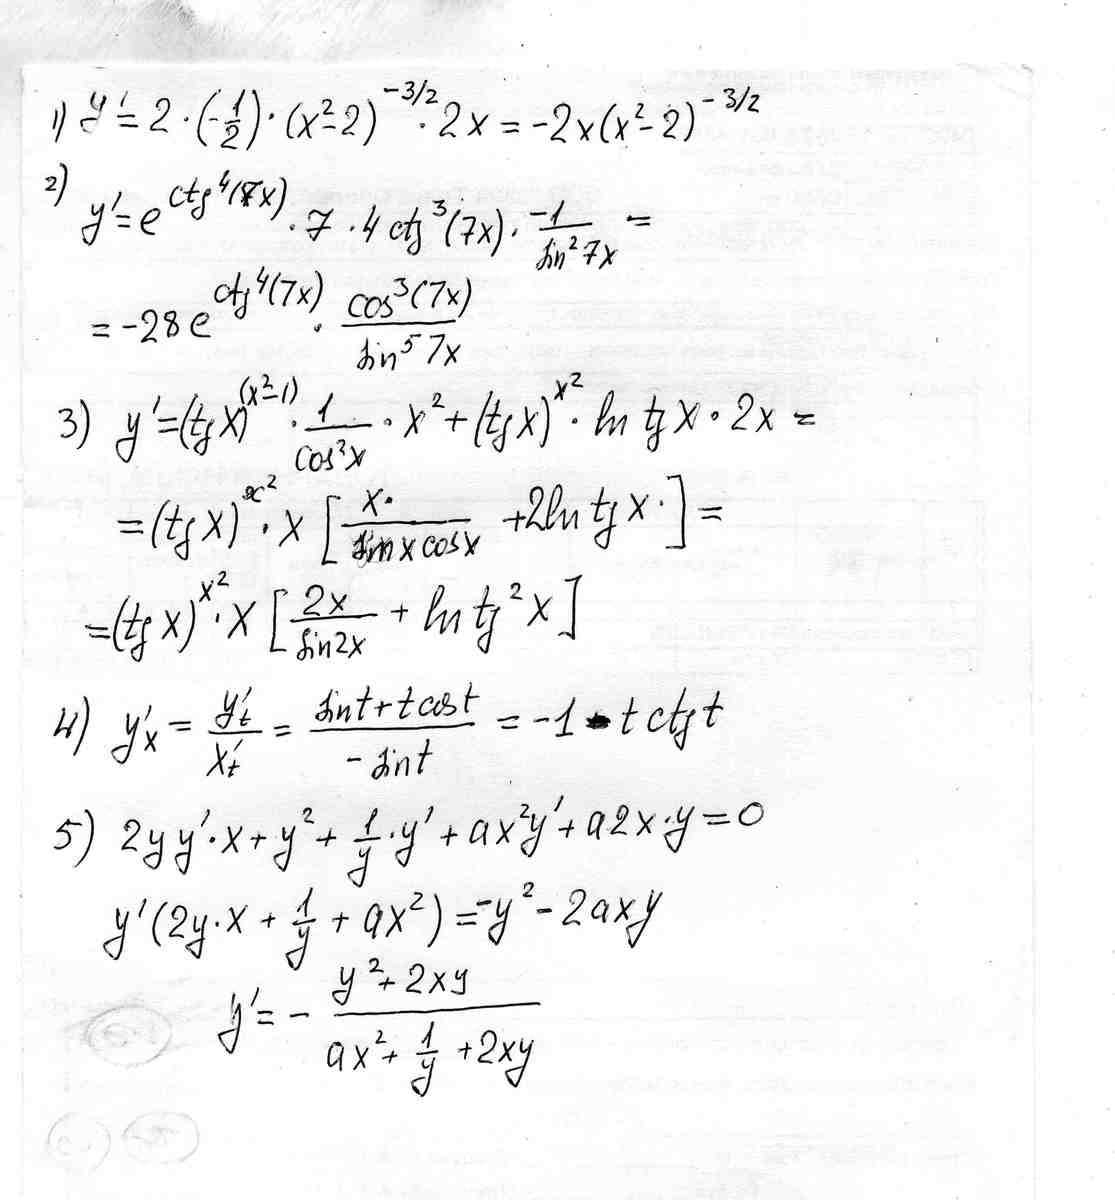 1) y' = 2 · (-1/2) · (x² - 2)^(-3/2) · 2x = -2x(x² - 2)^(-3/2)
2) y' = e^(ctg⁴(7x)) · 7 · 4 ctg³(7x) · -1/sin² 7x =
= -28 e^(ctg⁴(7x)) · cos³(7x)/sin⁵ 7x
3) y' = (tg x)^(x²-1) · 1/cos²x · x² + (tg x)^(x²) · ln tg x · 2x =
= (tg x)^(x²) · x [x·/(sin x cos x) + 2 ln tg x ·] =
= (tg x)^(x²) · x [2x/sin 2x + ln tg² x]
4) y'ₓ = y'ₜ/x'ₜ = (sin t + t cos t)/(- sin t) = -1 - t ctg t
5) 2y y' · x + y² + 1/y · y' + ax²y' + a2x · y = 0
y'(2y · x + 1/y + ax²) = -y² - 2axy
y' = - (y² + 2xy)/(ax² + 1/y + 2xy)